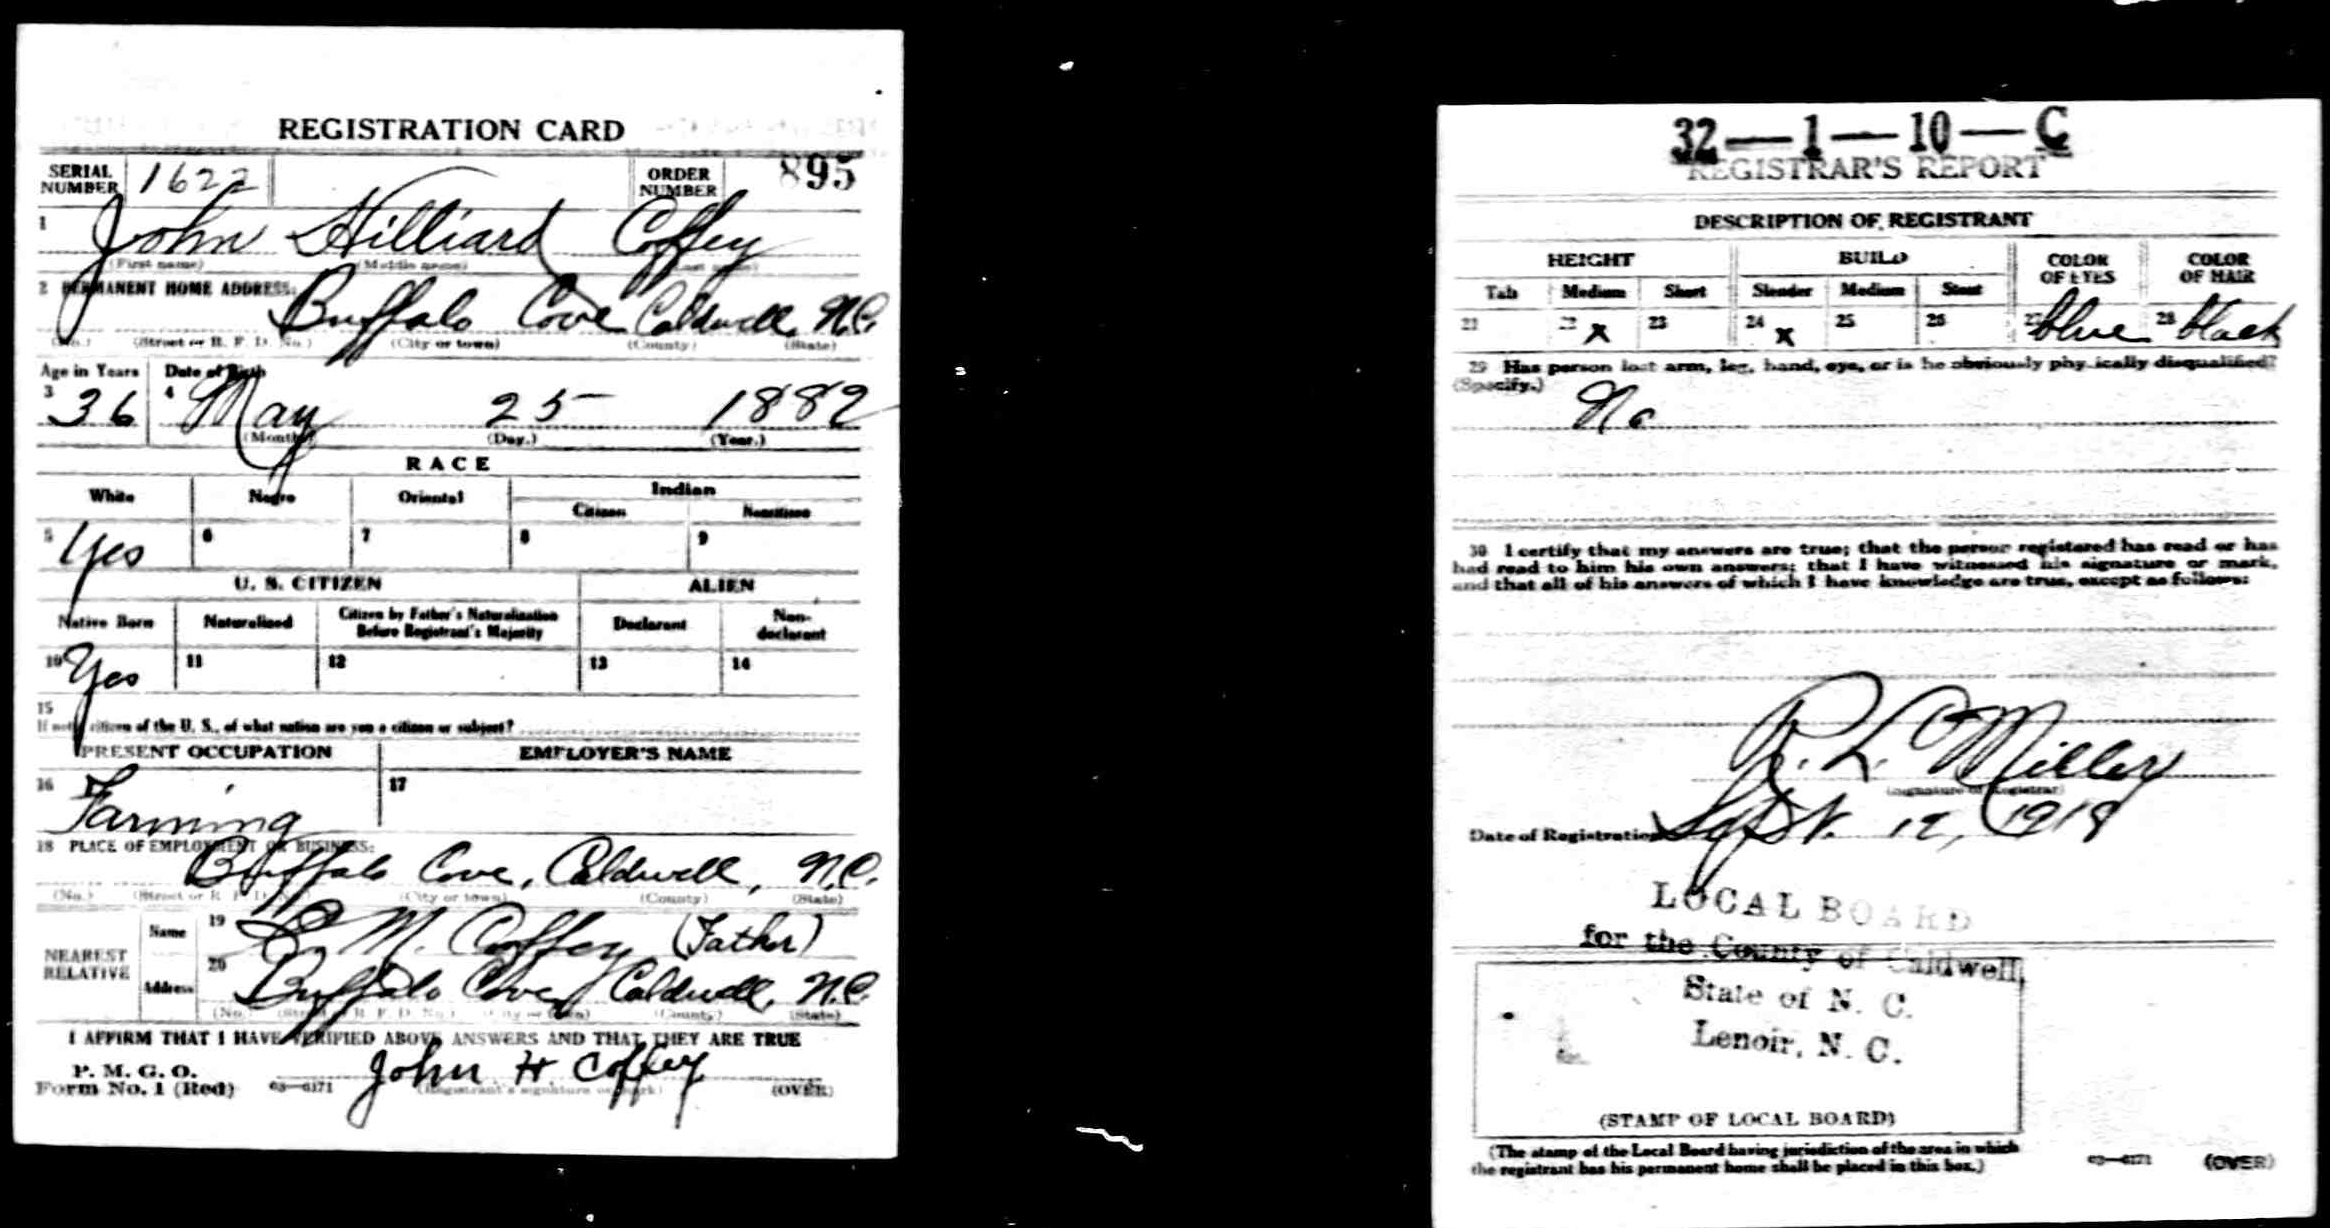 REGISTRATION CARD
SERIAL NUMBER 1622 ORDER NUMBER 895
1 John Hilliard Coffey
(First name) (Middle name) (Last name)
2 PERMANENT HOME ADDRESS:
Buffalo Cove Caldwell, N.C.
(No.) (Street or R. F. D. No.) (City or town) (County) (State)
Age in Years Date of Birth
3 36 4 May 25 1882
(Month) (Day.) (Year.)
RACE
White Negro Oriental Indian
Citizen Noncitizen
5 Yes 6 7 8 9
U. S. CITIZEN ALIEN
Native Born Naturalized Citizen by Father's Naturalization Before Registrant's Majority Declarant Non-declarant
10 Yes 11 12 13 14
15
If not a citizen of the U. S., of what nation are you a citizen or subject?
PRESENT OCCUPATION EMPLOYER'S NAME
16 Farming 17
18 PLACE OF EMPLOYMENT OR BUSINESS:
Buffalo Cove, Caldwell, N.C.
(No.) (Street or R. F. D. No.) (City or town) (County) (State)
NEAREST RELATIVE
Name 19 M. Coffey (Father)
Address 20 Buffalo Cove, Caldwell, N.C.
(No.) (Street or R. F. D. No.) (City or town) (County) (State)
I AFFIRM THAT I HAVE VERIFIED ABOVE ANSWERS AND THAT THEY ARE TRUE
P. M. G. O.
Form No. 1 (Red) 03—6171 John H Coffey (OVER)
(Registrant's signature or mark)
32—1—10—C
REGISTRAR'S REPORT
DESCRIPTION OF REGISTRANT
HEIGHT BUILD COLOR OF EYES COLOR OF HAIR
Tall Medium Short Slender Medium Stout
21 22 x 23 24 x 25 26 27 blue 28 black
29 Has person lost arm, leg, hand, eye, or is he obviously physically disqualified?
(Specify.)
No
30 I certify that my answers are true; that the person registered has read or has
had read to him his own answers; that I have witnessed his signature or mark,
and that all of his answers of which I have knowledge are true, except as follows:
R. L. Miller
(Signature of Registrar)
Date of Registration Sept. 12, 1918
LOCAL BOARD
for the County of Caldwell,
State of N. C.
Lenoir, N. C.
(STAMP OF LOCAL BOARD)
(The stamp of the Local Board having jurisdiction of the area in which
the registrant has his permanent home shall be placed in this box.)
03—6171 (OVER)